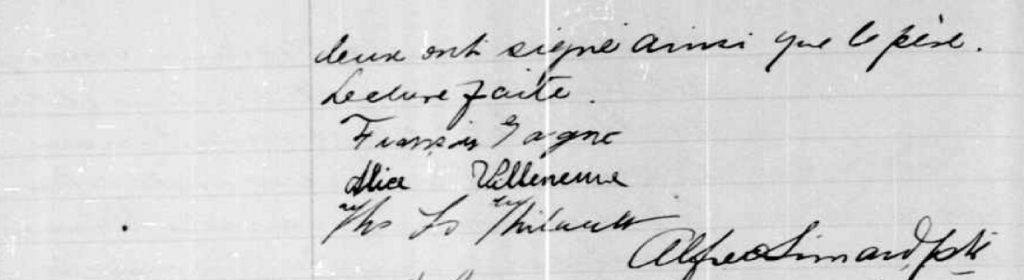 deux ont signé ainsi que le père.
Lecture faite.
François Gagné
Alice Villeneuve
Ths Ls Thibault
Alfred Simard Ptr